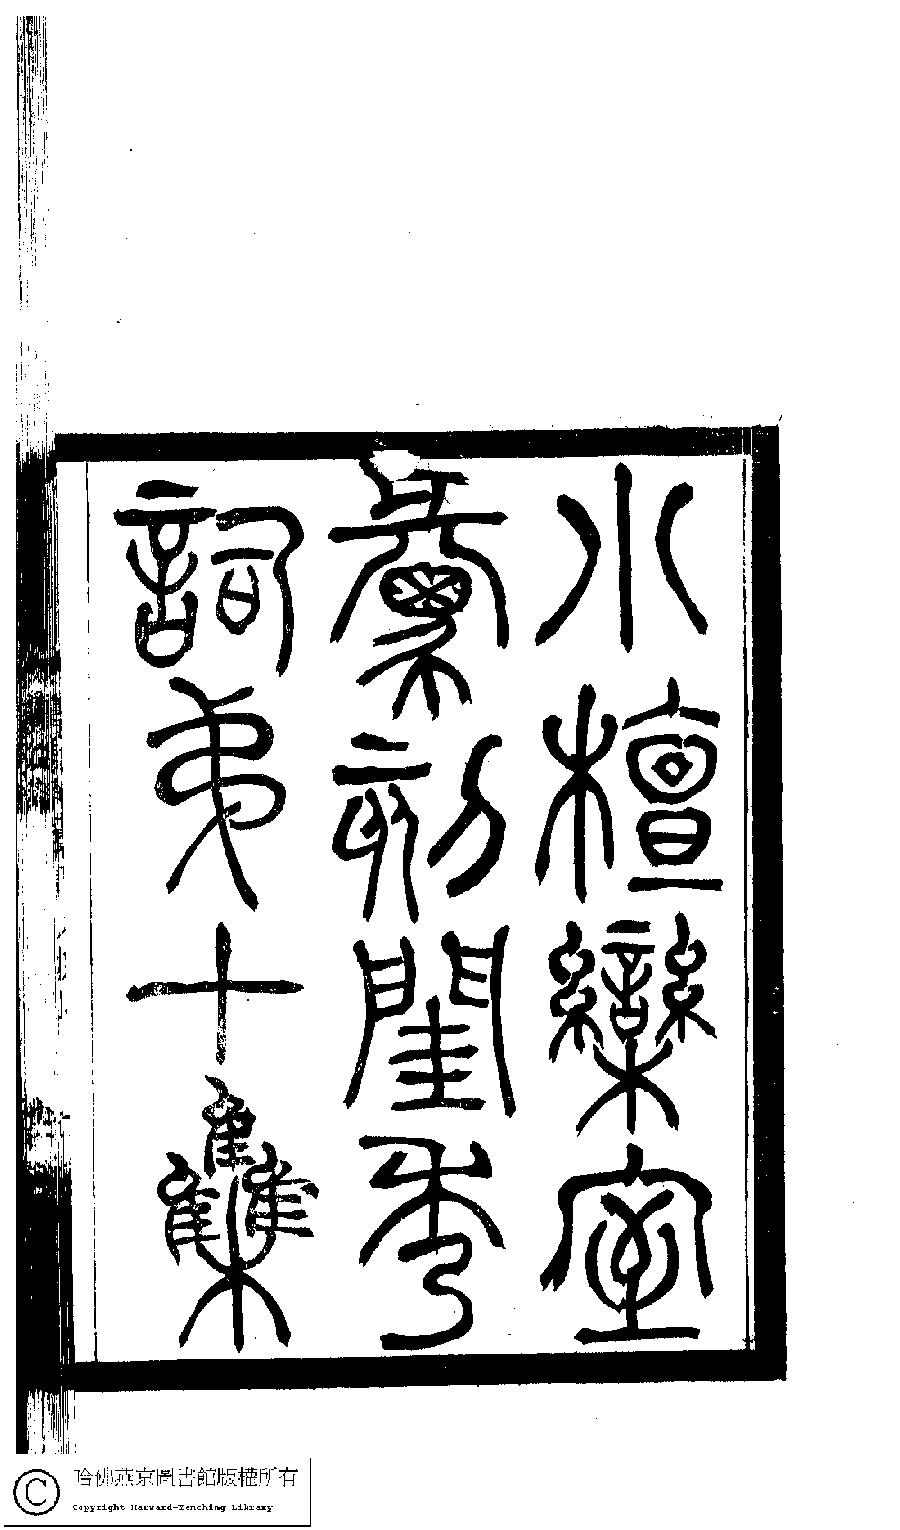 小檀欒室
彙刻閨秀
詞弟十集
© 哈佛燕京圖書館版權所有
Copyright Harvard-Yenching Library